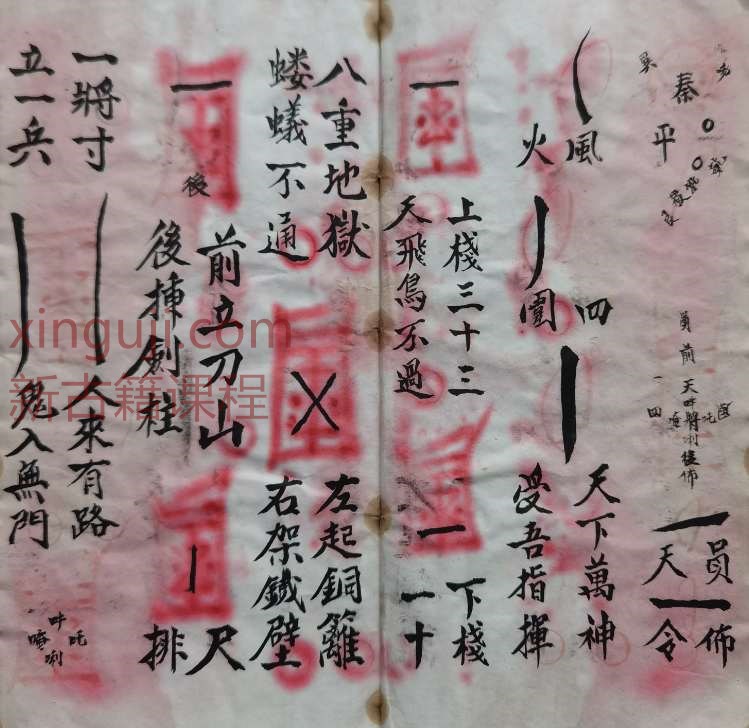 秦
平
員前
天吽將唎後佈
四
員佈
天令
風
火
四
圍
天下萬神
受吾指揮
上棧三十三
天飛鳥不過
下棧
一十
八重地獄
螻蟻不通
左起銅籬
右架鐵壁
後
前立刀山
後揷劍柱
尺
排
一將寸
人來有路
立一兵
鬼入無門
吽吒
唎
xinguji.com
新古籍课程